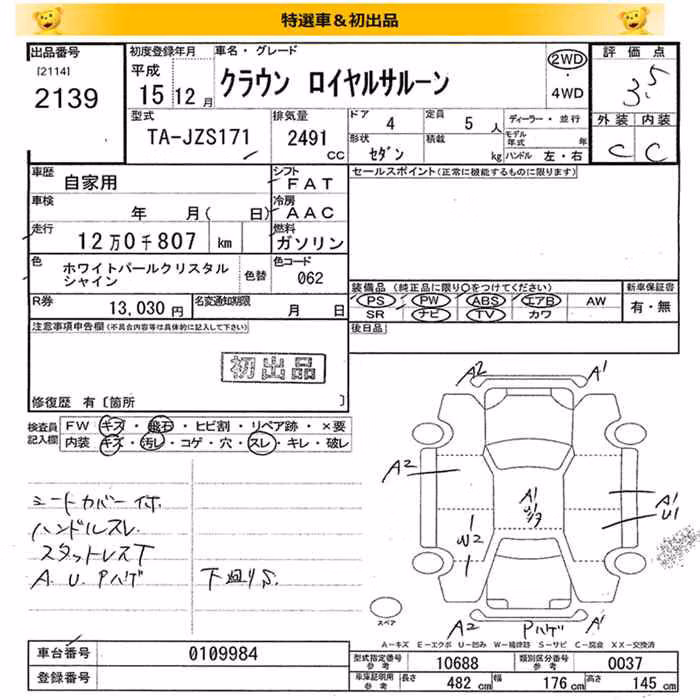 特選車＆初出品
出品番号 初度登録年月 車名・グレード 評価点
[2114] 平成 クラウン ロイヤルサルーン 2WD 3.5
2139 15 12月 ・ 4WD
型式 排気量 ドア 4 定員 5人 ディーラー・並行 外装 内装
TA-JZS171 2491 CC 形状 セダン 積載 kg モデル年式 年 ハンドル 左・右 C C
車歴 自家用 シフト FAT セールスポイント(正常に機能するものに限ります)
車検 年 月( 日) 冷房 AAC
走行 12万0千807 km 燃料 ガソリン
色 ホワイトパールクリスタルシャイン 色替 色コード 062
装備品 (純正品に限り○をつけてください) 新車保証書
R券 13,030円 名変通知期限 月 日
PS PW ABS エアB AW 有・無
SR ナビ TV カワ
注意事項申告欄(不具合内容等は具体的に記入して下さい) 後日品
初出品
修復歴 有〔箇所 〕
検査員記入欄 FW キズ・飛石・ヒビ割・リペア跡・×要
内装 キズ・汚レ・コゲ・穴・スレ・キレ・破レ
A2 A1
A2 A1 A1
U1
W2
シートカバー付
ハンドルスレ
スタットレスT
A.U.Pハゲ 下廻りS
スペア
A2 Pハゲ A1
A－キズ E－エクボ U－凹み W－補修跡 S－サビ C－腐食 XX－交換済
車台番号 0109984 型式指定番号参考 10688 類別区分番号参考 0037
登録番号 車庫証明用参考 長さ 482cm 幅 176cm 高さ 145cm